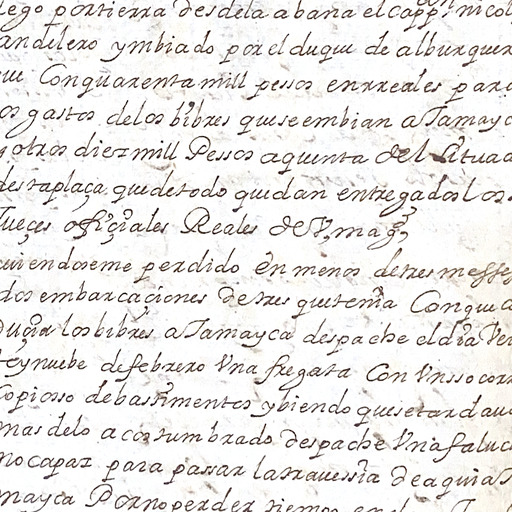 lego por tierra desde la abana el capp.n nicol
andelero y mbiado por el duque de alburquer
que Con quarenta mill pessos en rreales para
os gastos de los bibres que se embian a Jamayc
y otros diez mill Pessos a quenta del situad
desta plaça que de todo quedan entregados los
Jueçes ofiçiales Reales de V mag.d
auiendoseme perdido en menos de tres messes
dos embarcaçiones de tres que tenia Con que c
duçia los bibres a Jamayca despache el dia Ven
te y nuebe de febrero Vna fregata Con Vn ssocorr
copiosso de bastimentos y biendo que se tardaua
mas de lo acostumbrado despache Vna faluc
no capaz para passar la trauessia de aqui a J
mayca Por no perder tiempo en